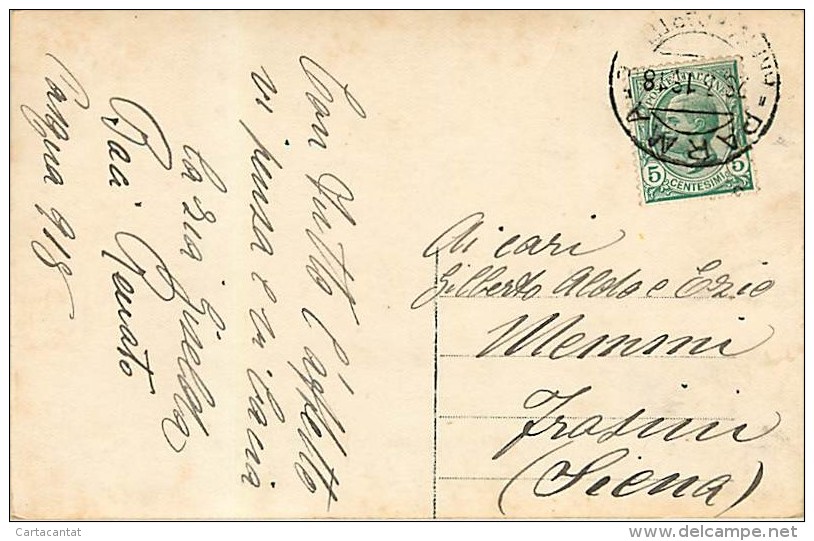 Con tutto l'affetto
vi pensa e vi bacia
la zia Giselda
Baci Renato
Pasqua 918
Ai cari
Gilberto Aldo e Ezio
Memmi
Frosini
(Siena)
PARMA
5 CENTESIMI 5
Cartacantat
www.delcampe.net